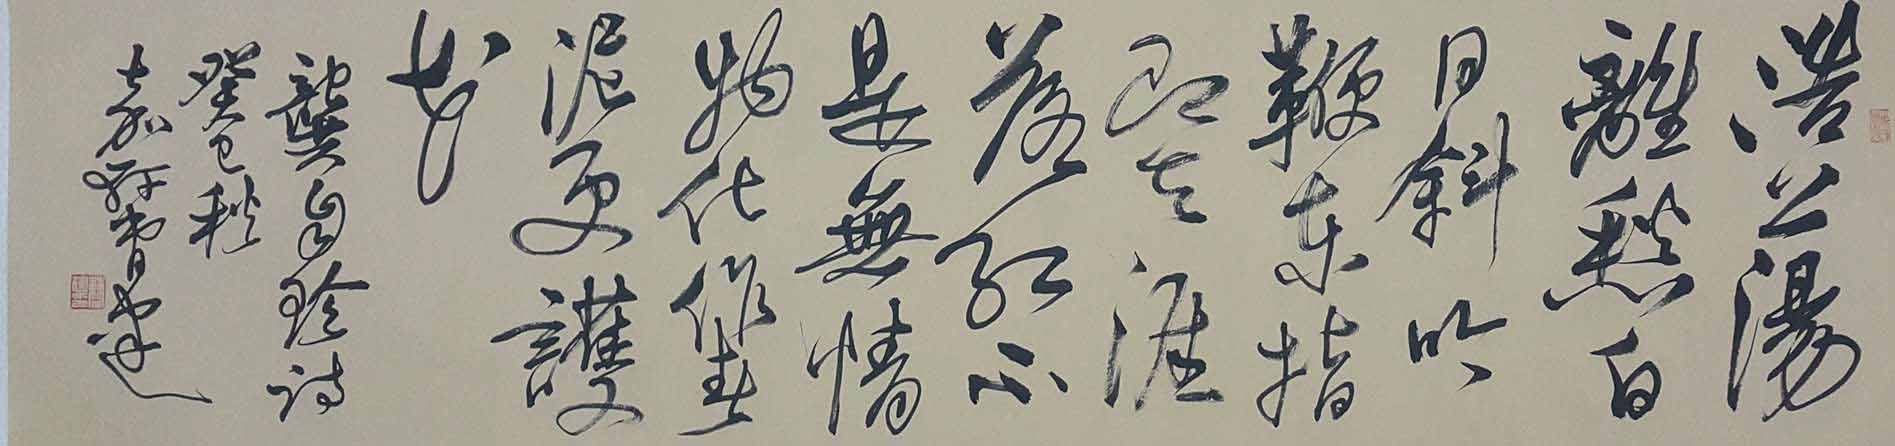 浩蕩
離愁白
日斜吟
鞭東指
即天涯
落紅不
是無情
物化作春
泥更護
花
龔自珍詩
癸巳秋
嘉